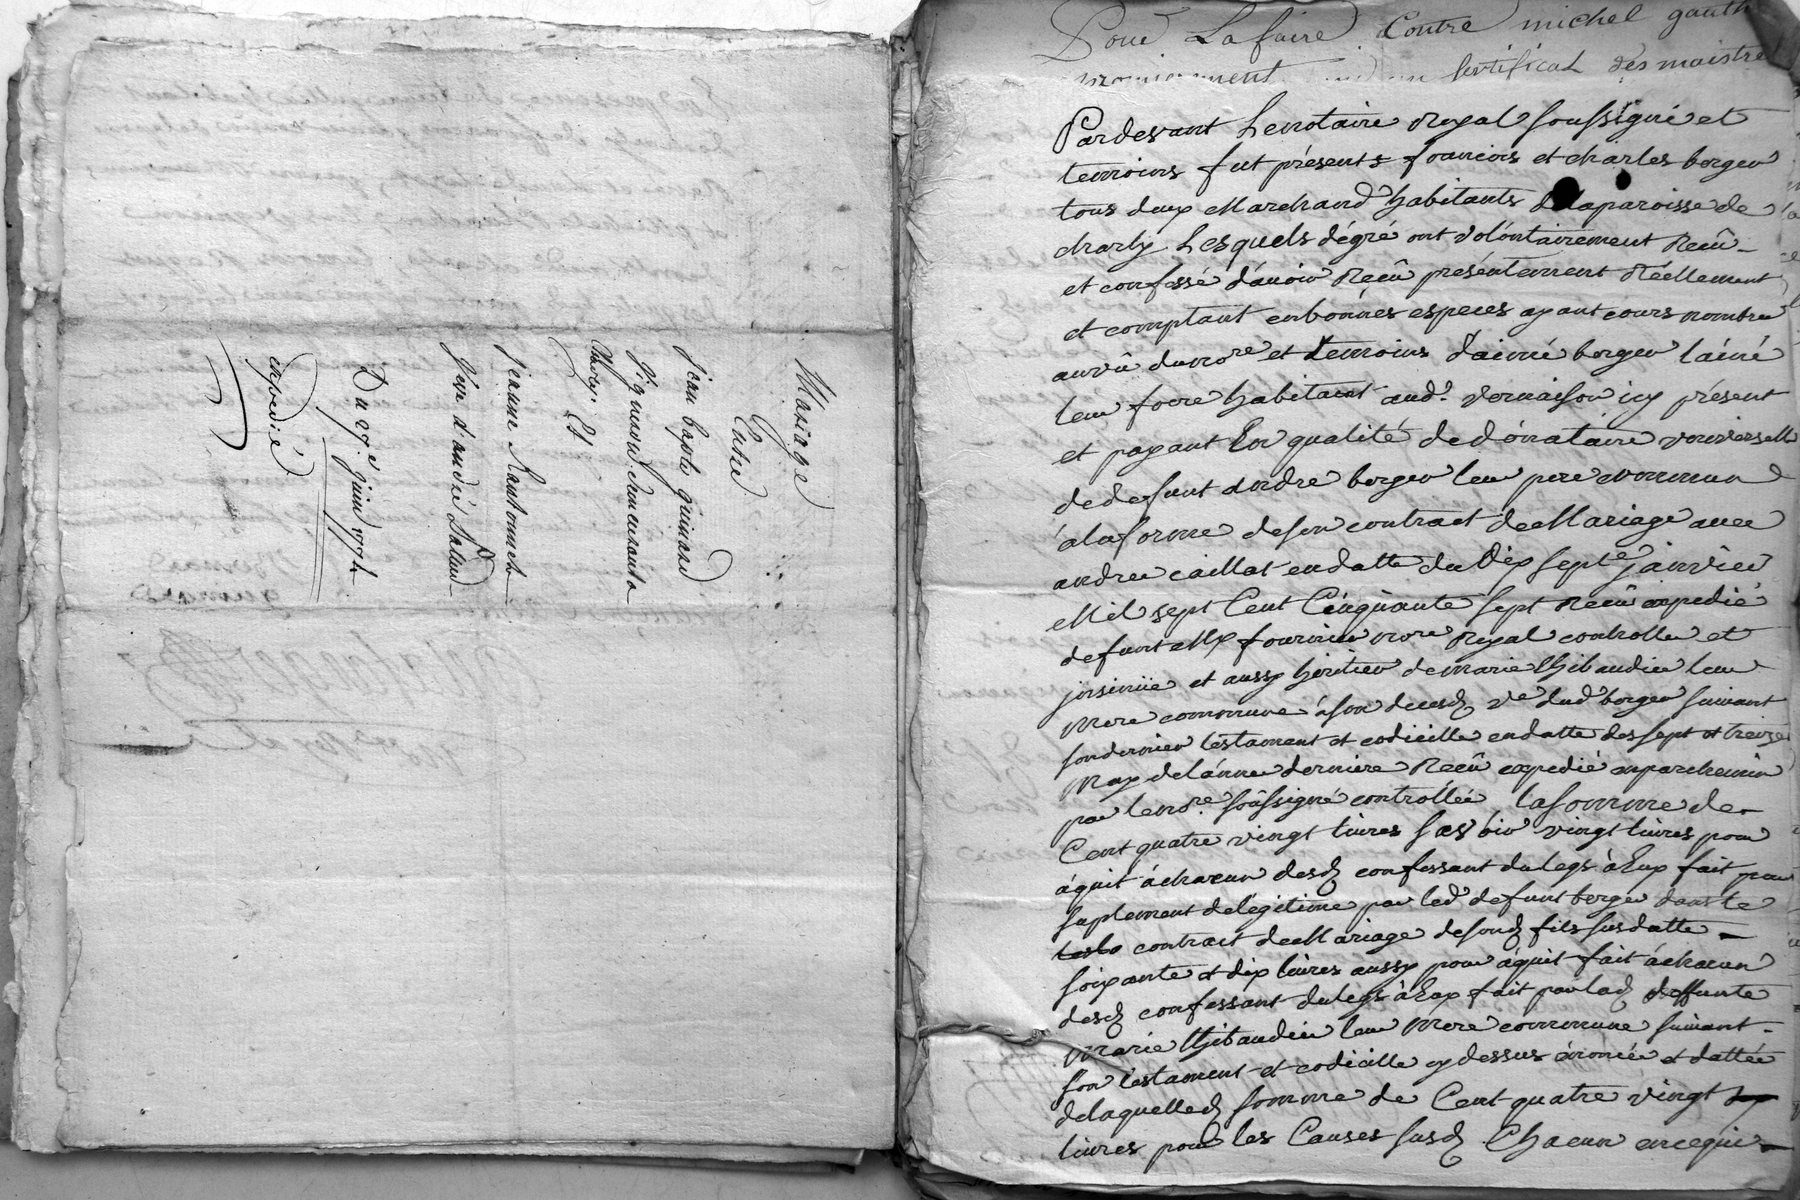 Mariage
Entre
jean baptte guinand
vigneron demeurant a
Et
jeanne
fille d'andré
Du 9e. juin 1774
expedié
Pour Lafaire Contre michel gauth
un sertificat des maistre
Pardevant Lenotaire Royal soussigné et
temoins fut présents francois et charles berger
tous deux Marchand habitants delaparoisse de
charly Lesquels dégré ont volontairement Recû
et confessé d'avoir Recû presentement Réellement
et comptant enbonnes especes ayant cours nombré
auvû dunore et temoins d'aimé berger l'ainé
leur frere habitant aud. vernaison icy présent
et payant En qualité de donataire vniverselle
dedefunt andré berger leur pere commun
alaforme deson contract deMariage avec
andrée caillat endatte du Dix septe janvier
Mil sept Cent Cinquante sept Recû expedié
defunt Mx fournier nore Royal controllé et
jnsinüé et aussy héritier demarie thibaudier leur
mere commune àson decedz ve dud berger suivant
sondernier testament et codicille endatte des sept et treize
may delannee derniere Recû expedié enparchemin
par lenore. soussigné controllée, lasomme de
Cent quatre vingt livres savoir vingt livres pour
áquit áchacun desdz confessant dulegs à Eux fait pour
suplement delegitime par led defunt berger dans le
contract deMariage desondz fils susdatte
soixante et dix livres aussy pour áquit fait áchacun
desdz confessant dulegs à Eux fait par ladz deffunte
marie thibaudier leur Mere commune suivant
son testament et codicille cy dessus énoncée et dattée
delaquelledz somme de Cent quatre vingt
livres pour les Causes susdz Chacun encequi